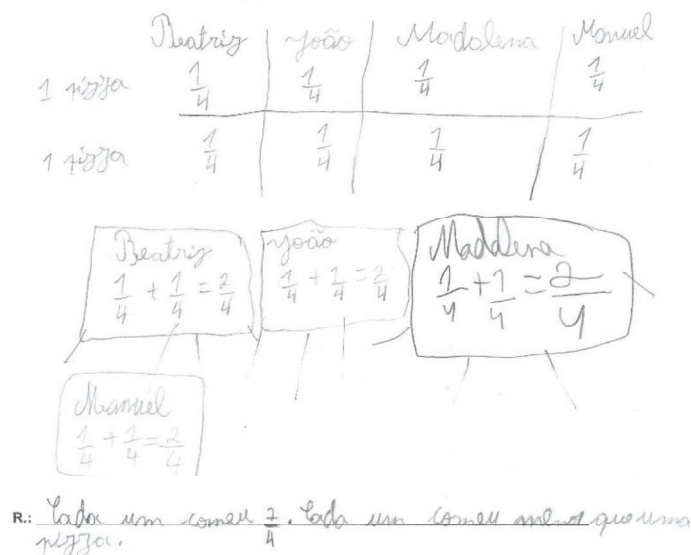 Beatriz João Madalena Manuel
1 pizza 1/4 1/4 1/4 1/4
1 pizza 1/4 1/4 1/4 1/4
Beatriz João Madalena
1/4 + 1/4 = 2/4 1/4 + 1/4 = 2/4 1/4 + 1/4 = 2/4
Manuel
1/4 + 1/4 = 2/4
R.: Cada um comeu 2/4. Cada um comeu menos que uma
pizza.